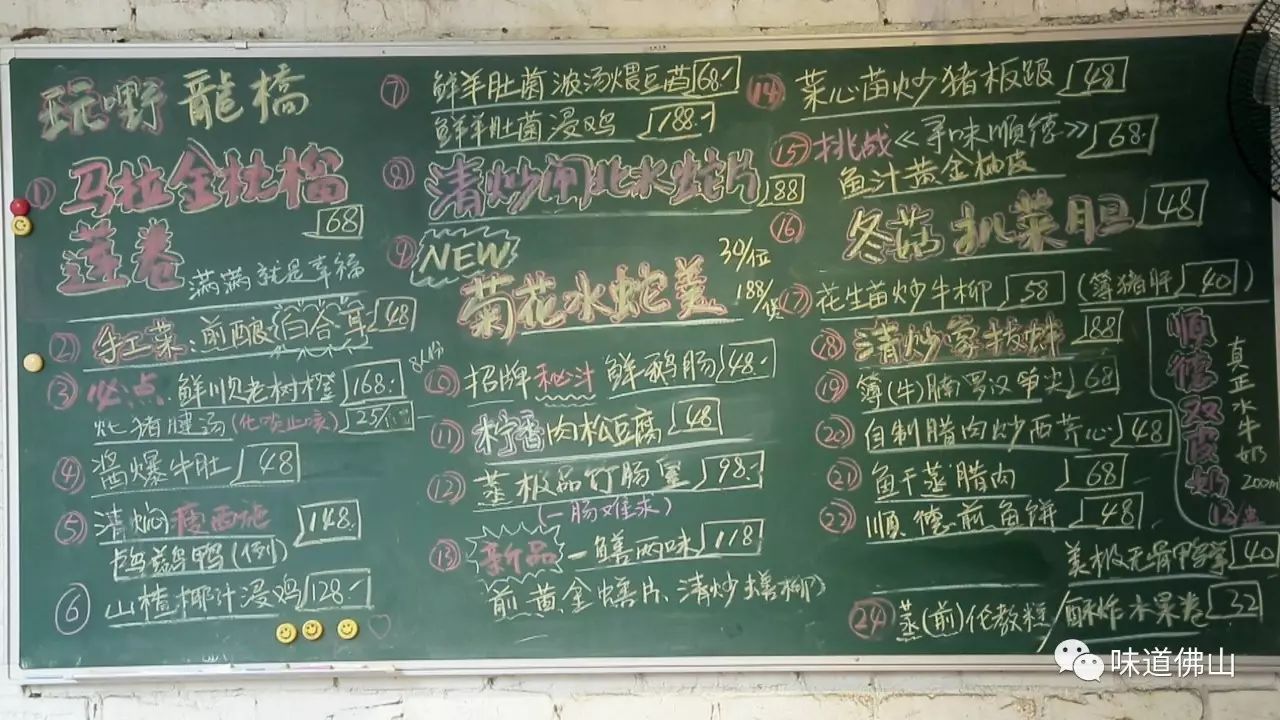 玩嘢龍橋
① 马拉金灶榴 68
莲卷 满满就是幸福
② 手工菜:煎酿白合耳 48
③ 必点 鲜顺老树橙 168.
炖猪腱汤(化痰止咳) 25/位
④ 酱爆牛肚 48
⑤ 清焖瘦西施 148.
鸬鹚鸭(例)
⑥ 山楂椰汁浸鸡 128.
⑦ 鲜羊肚菌浓汤煨豆苗 68.
鲜羊肚菌浸鸡 188.
⑧ 清炒闸北水蛇片 188
⑨ NEW 30/位
菊花水蛇羹 188/煲
⑩ 招牌秘汁鲜鹅肠 48.
⑪ 柠香肉松豆腐 48
⑫ 蒸极品钉肠皇 98.
(一肠难求)
⑬ 新品 一鳝两味 118
煎黄金鳝片、清炒鳝柳)
⑭ 菜心苗炒猪板踭 48
⑮ 挑战《寻味顺德》 68.
鱼汁黄金柚皮
⑯ 冬菇扒菜胆 48
⑰ 花生苗炒牛柳 58 (簿猪肝 40)
⑱ 清炒 188
⑲ 簿(牛)腩罗汉笋尖 68
⑳ 自制腊肉炒西芹心 48
㉑ 鱼干蒸腊肉 68
㉒ 顺德煎鱼饼 48
美极无骨甲 40
㉔ 蒸(煎)伦教糕/酥炸水果卷 32
顺德双皮奶
真正水牛奶
200ml
味道佛山